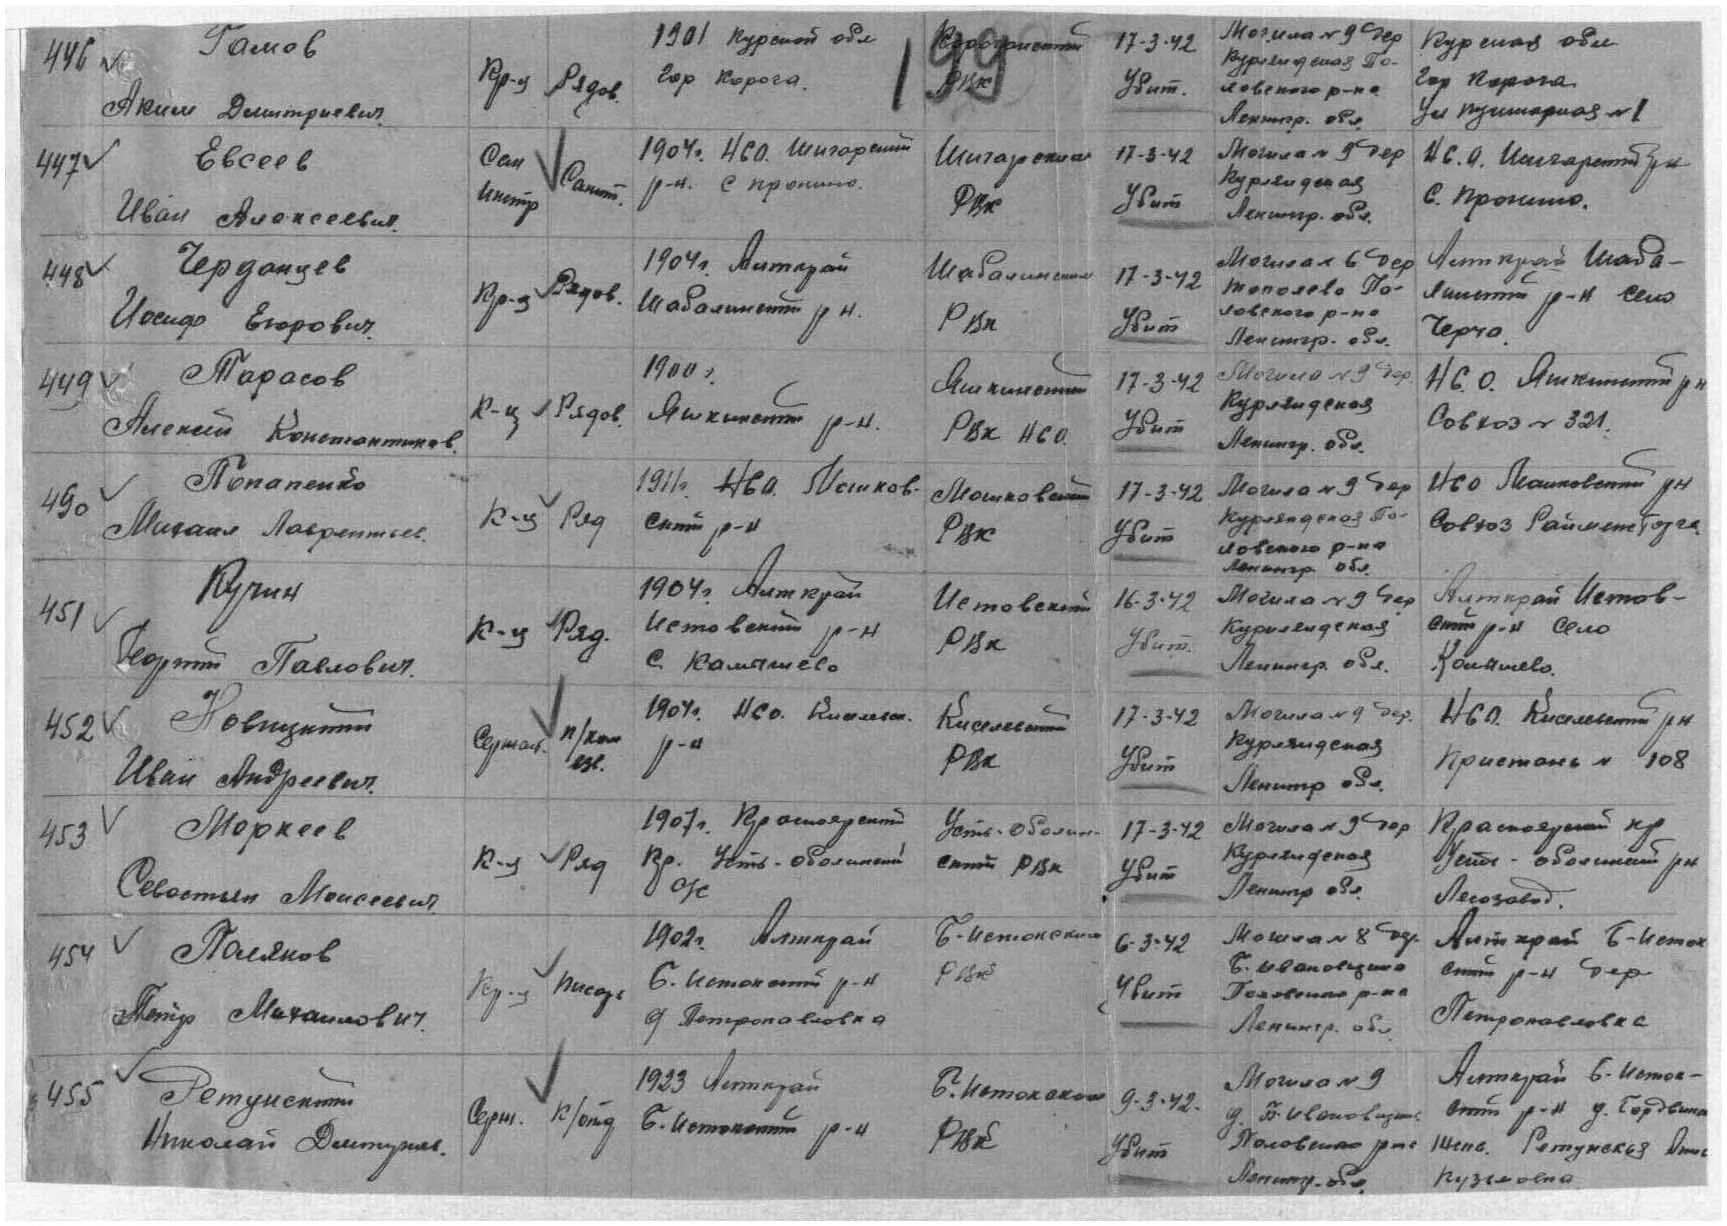 446 Гамов
Аким Дмитриевич.
Кр-ц
Рядов.
1901 Курской обл
Гор Короча.
РВК
199
17-3-42
Убит.
Могила № 9 дер
Курляндская По-
ловского р-на
Ленингр. обл.
Курская обл
Гор Короча
Ул Пушкарная № 1
447 Евсеев
Иван Алексеевич.
Сан
Инстр
Санит.
1904г. НСО. Шигарский
р-н. с Пронино.
Шигарский
РВК
17-3-42
Убит
Могила № 9 дер
Курляндская
Ленингр. обл.
НС.О. Шигарский р-н
С. Пронино.
448 Черданцев
Иосиф Егорович.
Кр-ц
Рядов.
1904г. Алткрай
Шабалинский р-н.
Шабалинский
РВК
17-3-42
Убит
Могила № 6 дер
Тополево По-
ловского р-на
Ленингр. обл.
Алткрай Шаба-
линский р-н село
Черча.
449 Тарасов
Алексей Константинов.
К-ц
Рядов.
1900г.
Яшкинский р-н.
Яшкинский
РВК НСО.
17-3-42
Убит
Могила № 9 дер.
Курляндская
Ленингр. обл.
НС.О. Яшкинский р-н
Совхоз № 321.
490 Потапенко
Михаил Лаврентьев.
К-ц
Ряд
1911г. НСО. Мошков-
ский р-н
Мошковский
РВК
17-3-42
Убит
Могила № 9 дер
Курляндская По-
ловского р-на
Ленингр. обл.
НСО Мошковский р-н
Совхоз
451 Кучин
Георгий Павлович.
К-ц
Ряд.
1904г. Алткрай
Истовский р-н
С. Камышево
Истовский
РВК
16-3-42
Убит.
Могила № 9 дер
Курляндская
Ленингр. обл.
Алткрай Истов-
ский р-н Село
Камышево.
452 Новицкий
Иван Андреевич.
Сержант.
п/ком
взв.
1904г. НСО. Киселевск.
р-н
Киселевский
РВК
17-3-42
Убит
Могила № 9 дер.
Курляндская
Ленингр обл.
НСО. Киселевский р-н
Пристань № 108
453 Моркеев
Севостьян Моисеевич.
К-ц
Ряд
1907г. Красноярский
Кр. Усть-Оболинский
Усть-Оболин-
ский РВК
17-3-42
Убит
Могила № 9 дер
Курляндская
Ленингр обл.
Красноярский кр
Усть-Оболинский р-н
Лесозавод.
454 Поляков
Пётр Михайлович.
Кр-ц
Писарь
1902г. Алткрай
Б. Истокский р-н
д Петропавловка
Б-Истокский
РВК
6-3-42
Убит
Могила № 8 дер.
Б. Ивановщина
Половского р-на
Ленингр. обл
Алткрай Б-Исток
ский р-н дер
Петропавловка
455 Ретунский
Николай Дмитриев.
Серж.
к/отд
1923 Алткрай
Б-Истокский р-н
Б. Истокский
РВК
9-3-42.
Убит
Могила № 9
д. Б. Ивановщина
Половского р-на
Ленингр. обл.
Алткрай Б-Исток-
ский р-н д.
Жена. Ретунская Анна
Кузьмовна